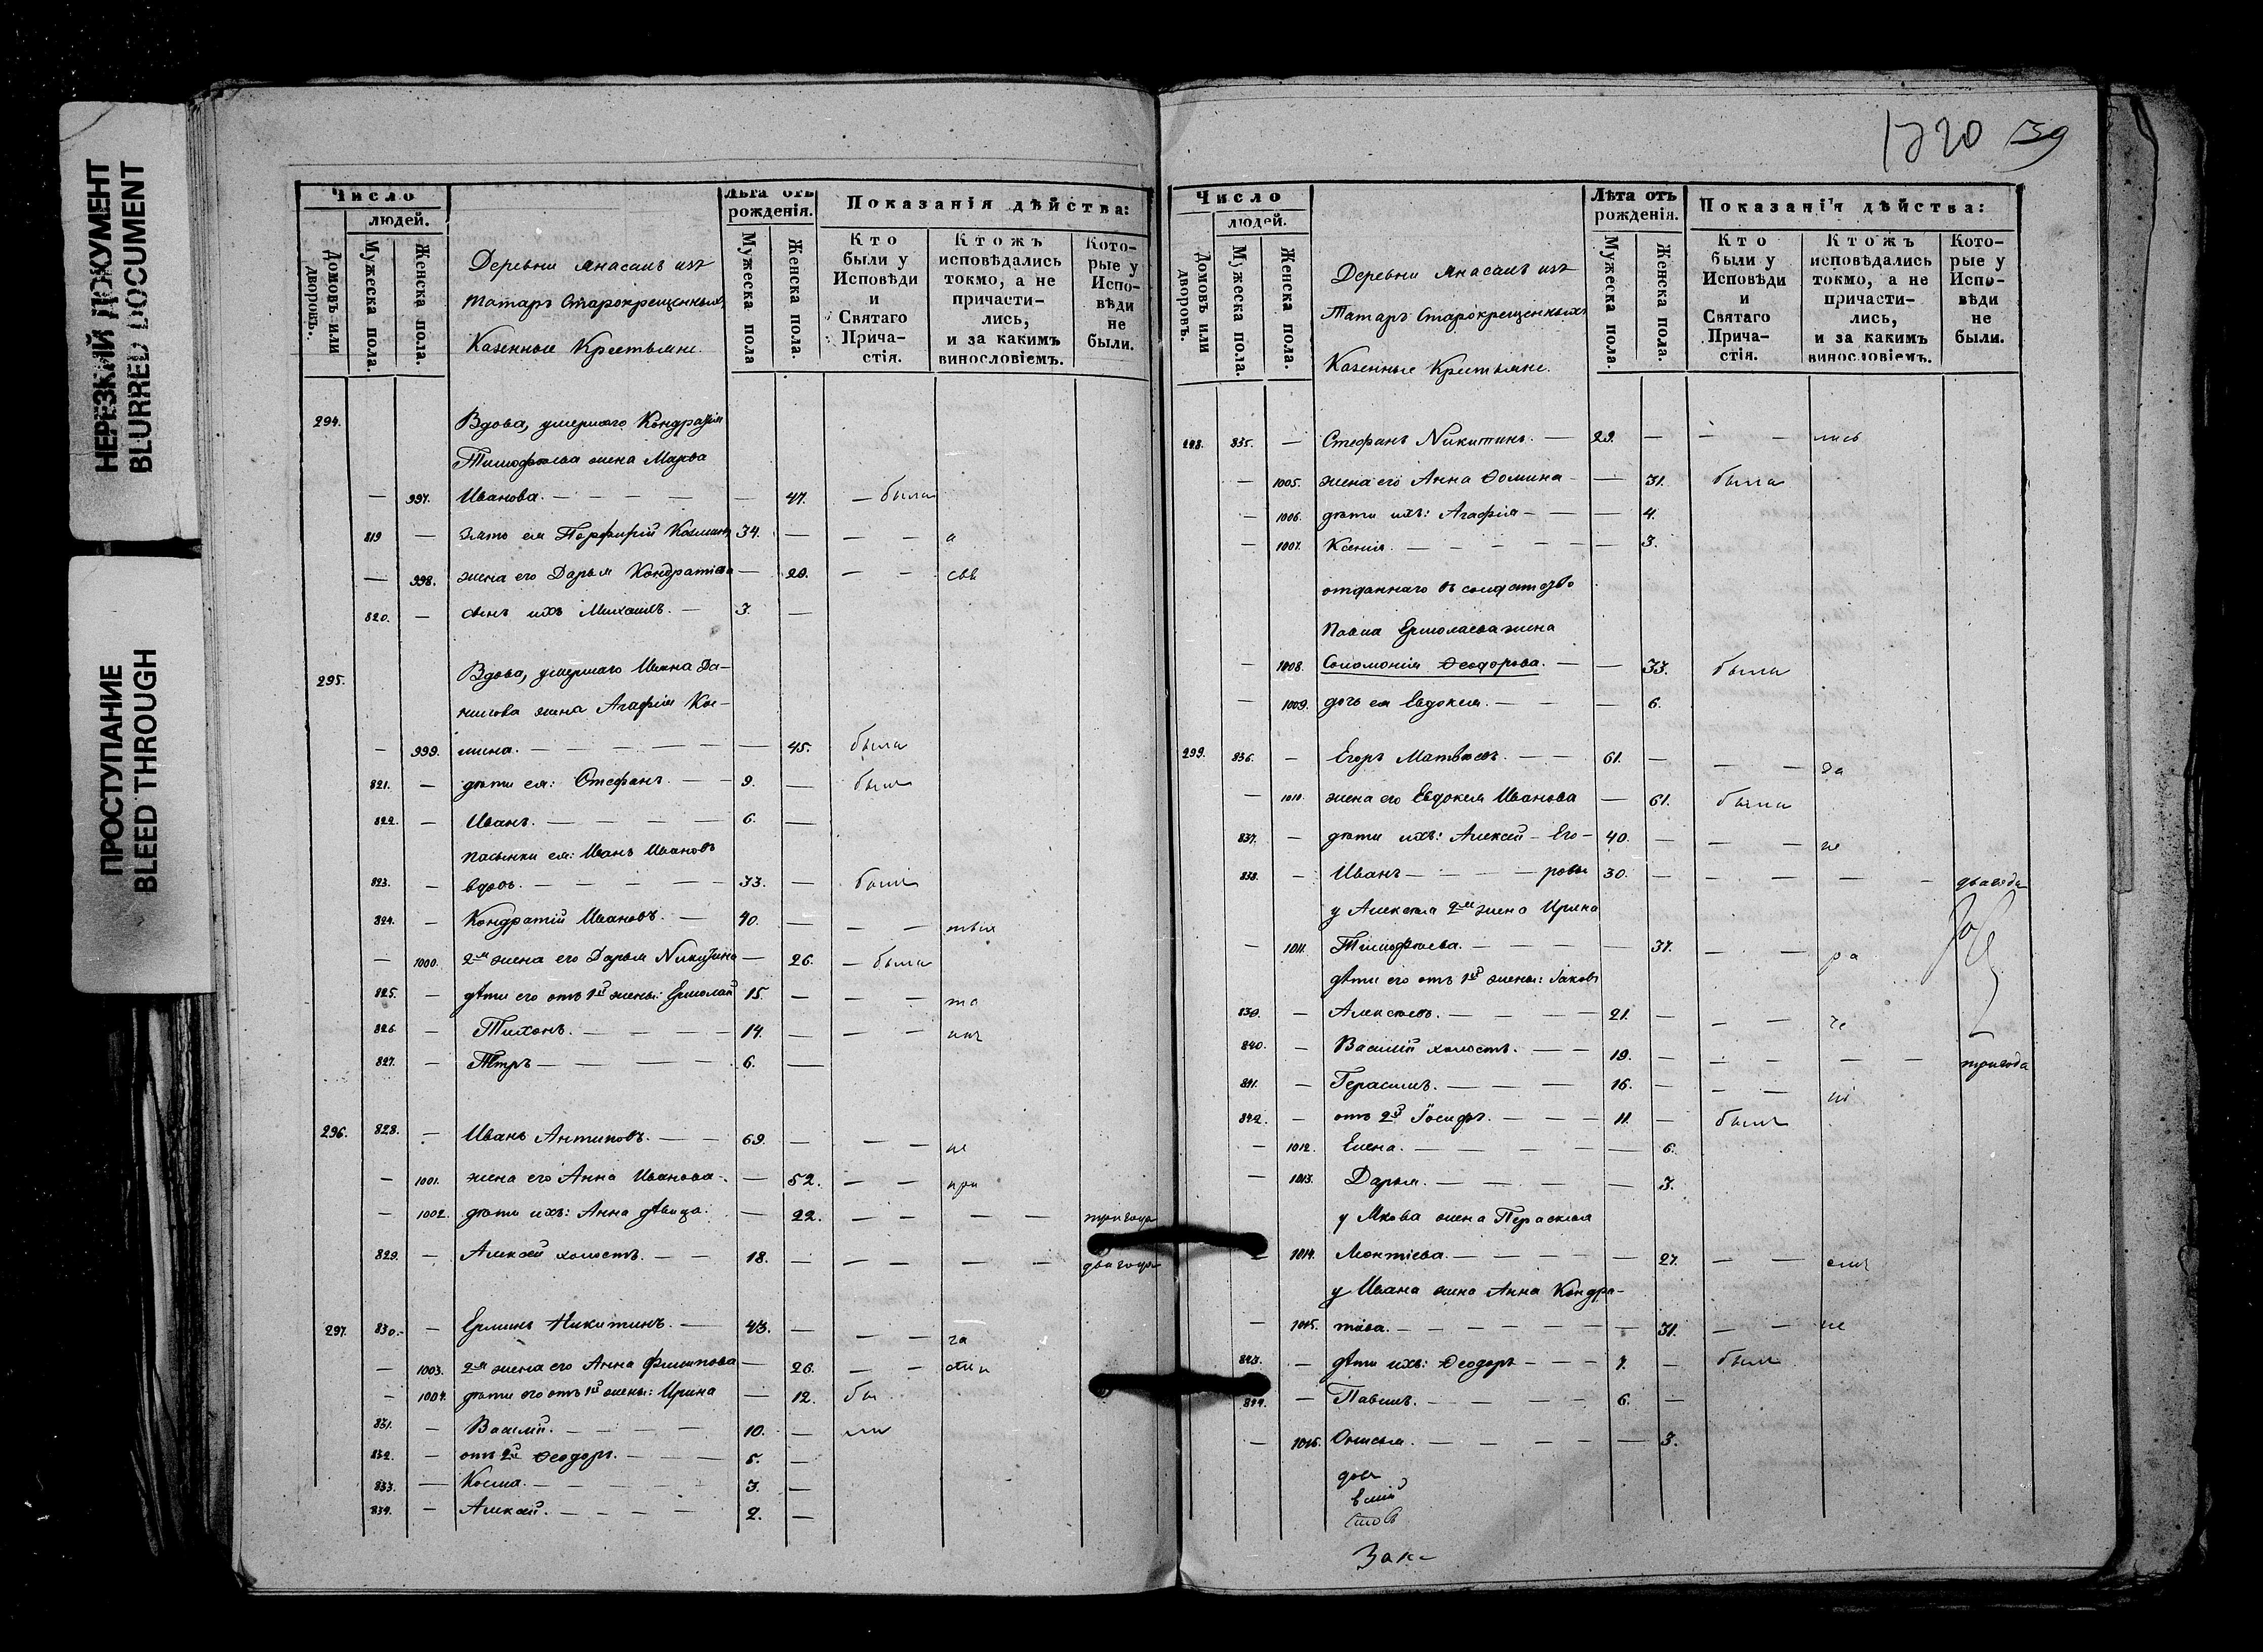 НЕРЕЗКИЙ ДОКУМЕНТ
BLURRED DOCUMENT
ПРОСТУПАНИЕ
BLEED THROUGH
Число
людей.
Домовъ или дворовъ.
Мужеска пола.
Женска пола.
Деревни Янасалъ изъ
Татаръ Старокрещенныхъ
Казенные Крестьяне.
Лѣта отъ рожденія.
Мужеска пола
Женска пола.
Показанія дѣйства:
Кто были у Исповѣди и Святаго Прича-стія.
Ктожъ исповѣдались токмо, а не причасти-лись, и за какимъ винословіемъ.
Кото-рые у Испо-вѣди не были.
294. Вдова, умершаго Кондратія
Тимофѣева жена Марѳа
— 997. Иванова. — — — — — 47. — была
819 — зять ея Порфирій Козминъ 34. — — — а
— 998. жена его Дарья Кондратіева — 20. — —
820. — сынъ ихъ Михаилъ. — 3. —
295. Вдова, умершаго Ивана Да-
нилова жена Агафія Кос-
— 999. мина. — — — — — — 45. была
821. — дѣти ея: Стефанъ. — — 9. — былъ
822. — Иванъ. — — — — 6. —
пасынки ея: Иванъ Ивановъ
823. — вдовъ. — — — — — 33. — былъ
824. — Кондратій Ивановъ. — 40. — — —
— 1000. 2я жена его Дарья Никитина — 26. — была
825. — дѣти его отъ 1й жены: Ермолай 15. — — — то
826. — Тихонъ. — — — — 14. — — —
827. — Петръ — — — — 6. —
296. 828. — Ивань Антиповъ. — — 69. — — — не
— 1001. жена его Анна Иванова. — 52. — — при
— 1002. дѣти ихъ: Анна дѣвица. — 22. — — — — три года
829. — Алексѣй холостъ. — — 18. — — — — — два года
297. 830. — Ермилъ Никитинъ. — 43. — — — ча
— 1003. 2я жена его Анна Филипова — 26. — — сти
— 1004. дѣти его отъ 1й жены: Ирина — 12. бы
831. — Василій. — — — — 10. — ли
832. — отъ 2й Ѳеодоръ. — — — 5. —
833. — Косма. — — — — — 3. —
834. — Алексѣй. — — — — 2. —
1720 39
Число
людей.
Домовъ или дворовъ.
Мужеска пола.
Женска пола.
Деревни Янасалъ изъ
Татаръ Старокрещенныхъ
Казенные Крестьяне.
Лѣта отъ рожденія.
Мужеска пола.
Женска пола.
Показанія дѣйства:
Кто были у Исповѣди и Святаго Прича-стія.
Ктожъ исповѣдались токмо, а не причасти-лись, и за какимъ винословіемъ.
Кото-рые у Испо-вѣди не были.
298. 835. — Стефанъ Никитинъ. — 29. — — — лись
— 1005. жена его Анна Ѳомина — — 31. была
— 1006. дѣти ихъ: Агафія — — — 4.
— 1007. Ксенія. — — — — — — 3.
отданнаго въ солдатство
Павла Ермолаева жена
— 1008. Соломонія Ѳеодорова. — — 33. была
— 1009. дочь ея Евдокія. — — — 6.
299. 836. — Егоръ Матвѣевъ. — — 61. — — — за
— 1010. жена его Евдокія Иванова — 61. была
837. — дѣти ихъ: Алексѣй — Его- 40. — — — не
838. — Иванъ — — — — ровы 30. — — — — — два года
у Алексѣя 2я жена Ирина
— 1011. Тимофѣева. — — — — — 37. — — ра
дѣти его отъ 1й жены: Іаковъ
839. — Алексѣевъ. — — — — 21. — — —
840. — Василій холостъ. — — 19. — — — — — три года
841. — Герасимъ. — — — — 16. — — —
842. — отъ 2й Іосифъ. — — — 11. — былъ
— 1012. Елена. — — — — — — 6.
— 1013. Дарья. — — — — — 3.
у Якова жена Параскева
— 1014. Леонтіева. — — — — — 27. — —
у Ивана жена Анна Кондра-
— 1015. тіева. — — — — — — — 31. — — не
843. — дѣти ихъ: Ѳеодоръ — — — 7. — былъ
844. — Павелъ. — — — — 6. —
— 1016. Онисья. — — — — — — 3.